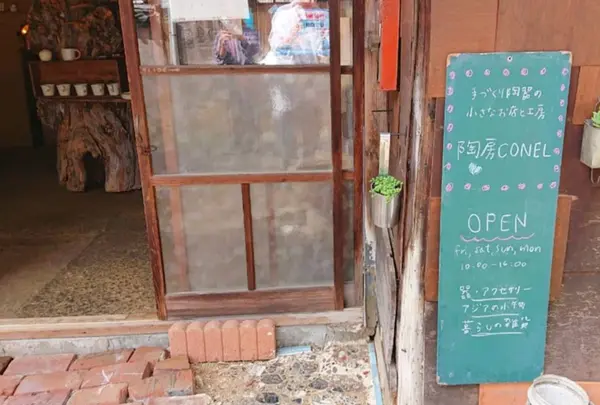 手づくり陶器の
小さなお店と工房
陶房CONEL
OPEN
fri, sat, sun, mon
10:00-16:00
器・アクセサリー
アジアの小物
暮らしの雑貨